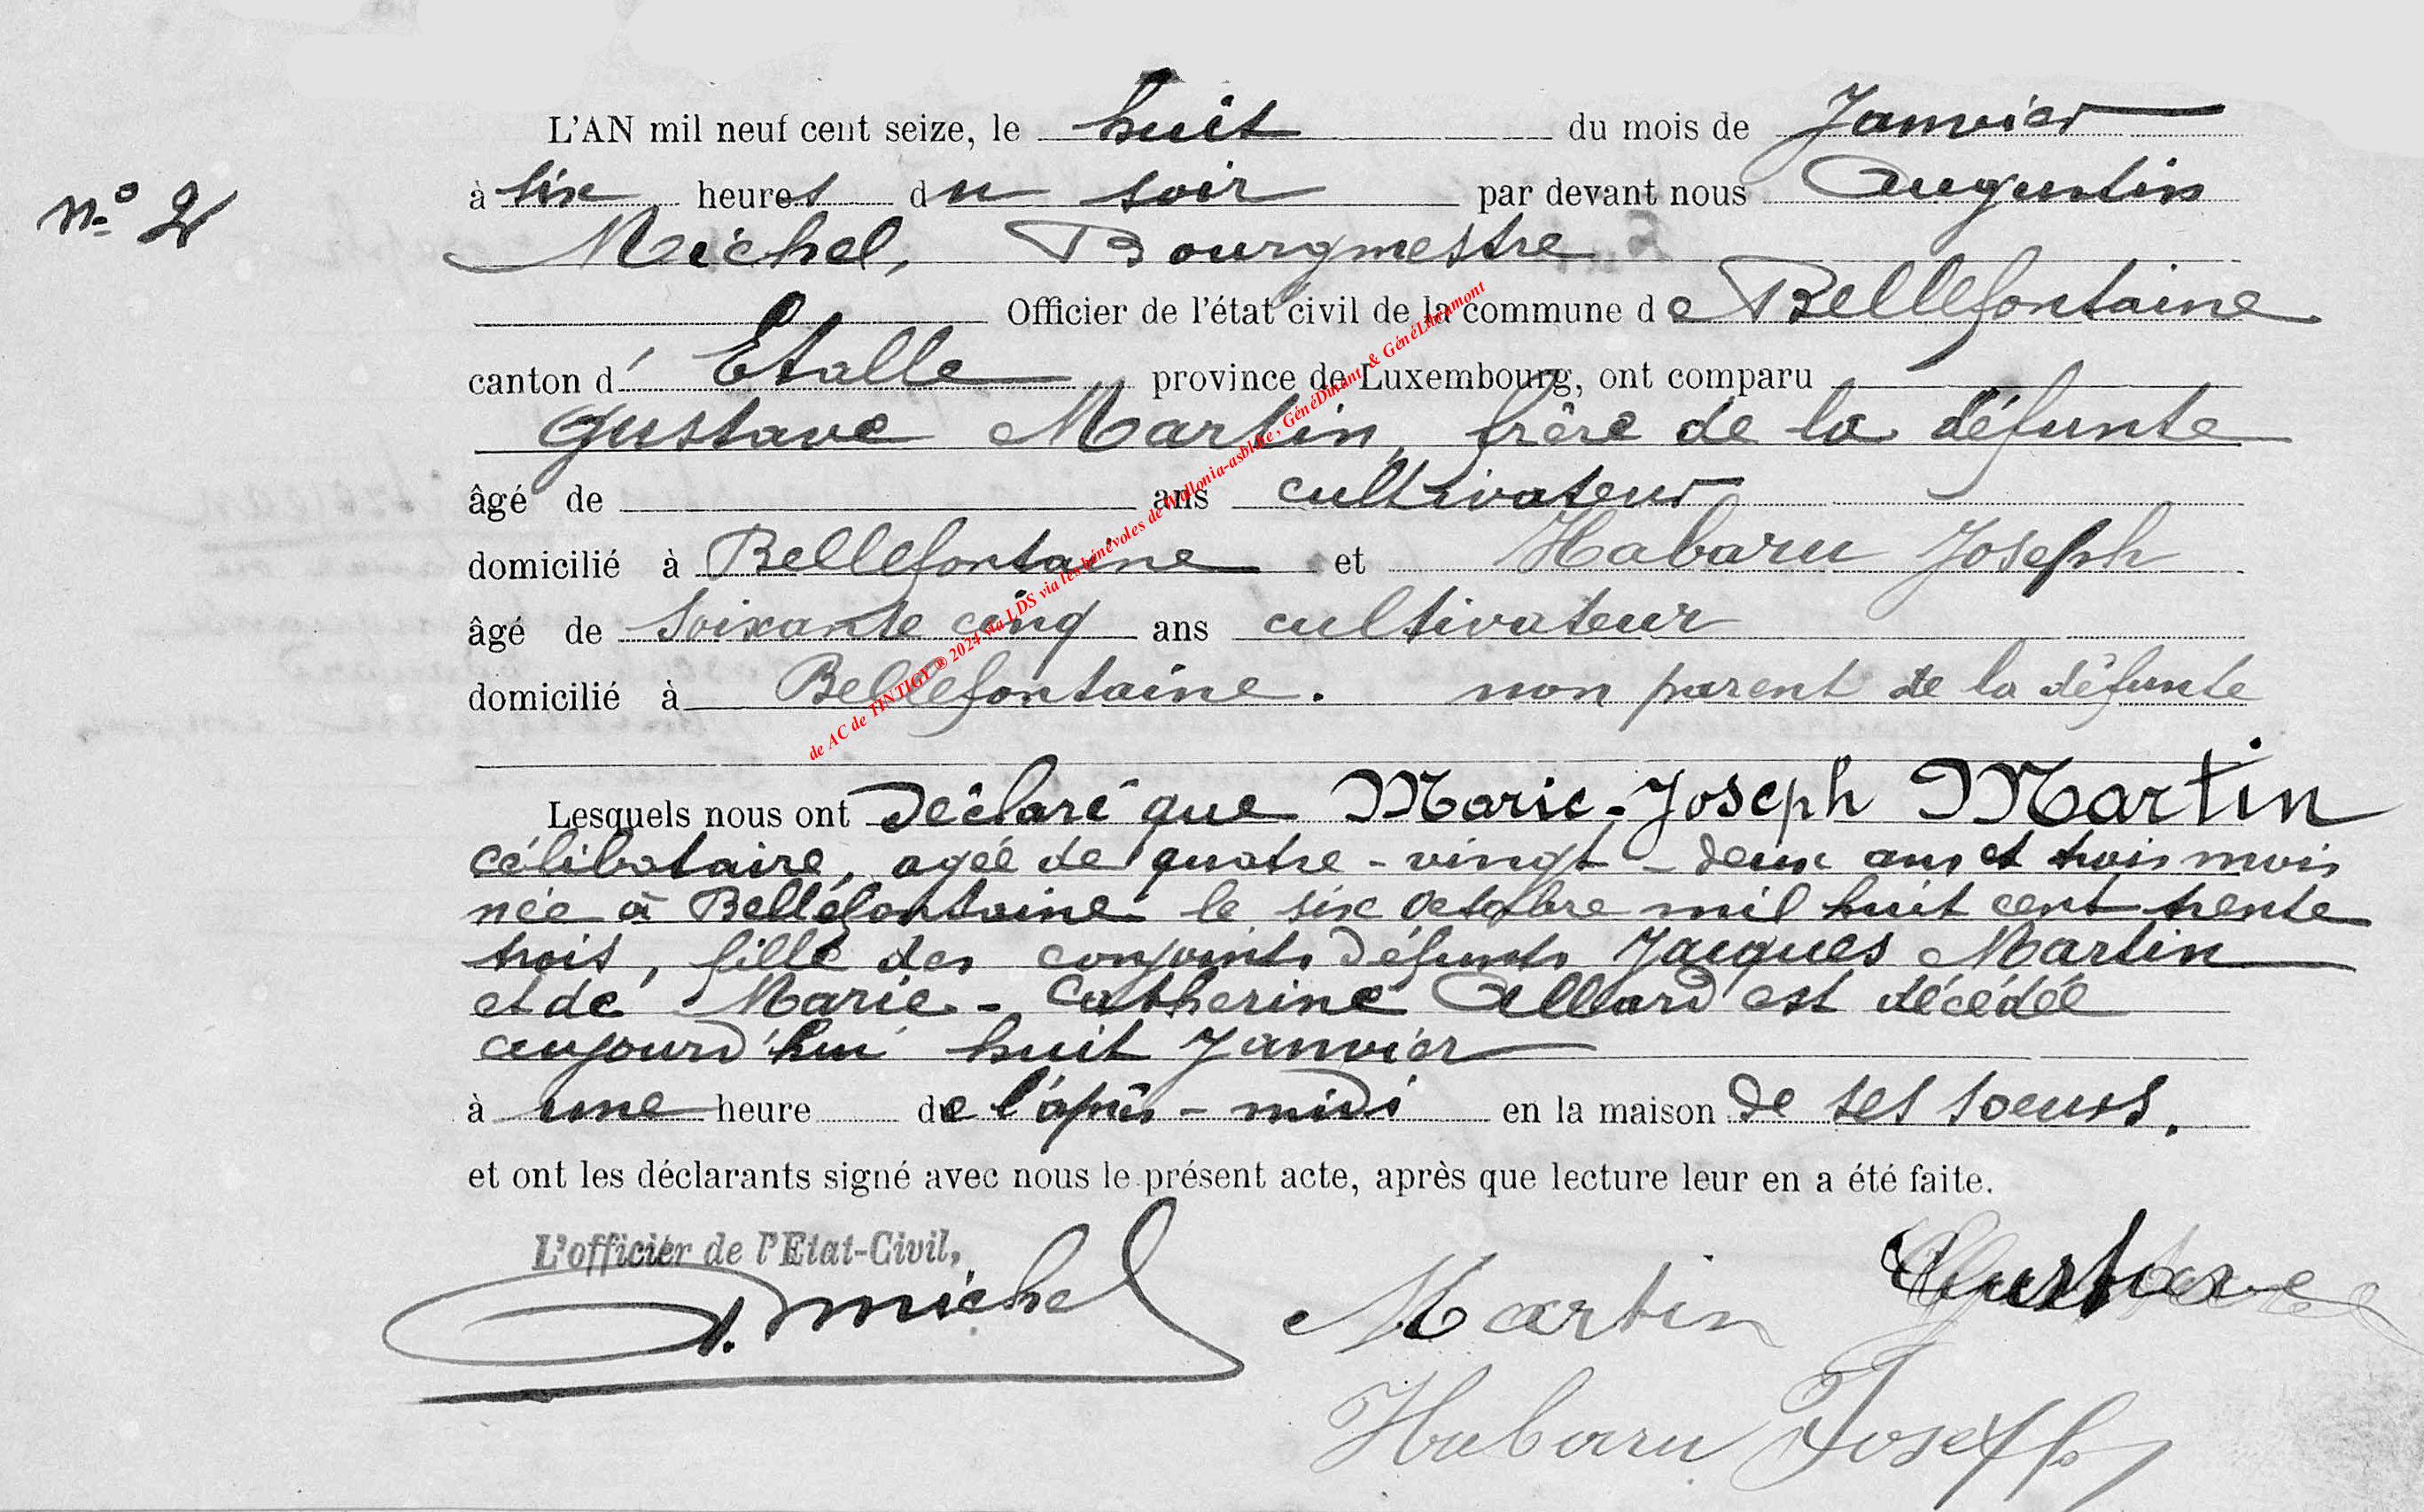 L'AN mil neuf cent seize, le huit du mois de Janvier
n.° 2
à six heures du soir par devant nous Augustin
Michel, Bourgmestre
Officier de l'état civil de la commune de Bellefontaine
canton d'Etalle province de Luxembourg, ont comparu
Gustave Martin, frère de la défunte
âgé de ans cultivateur
domicilié à Bellefontaine et Habaru Joseph
âgé de soixante cinq ans cultivateur
domicilié à Bellefontaine. non parent de la défunte
de AC de TINTIGY ® 2024 via LDS via les bénévoles de Wallonia-asbl.be, GénéDinant & GénéLibramont
Lesquels nous ont déclaré que Marie-Joseph Martin
célibataire, agée de quatre-vingt-deux ans et trois mois
née à Bellefontaine le six octobre mil huit cent trente
trois, fille des conjoints défunts Jacques Martin
et de Marie-Catherine Allard est décédée
aujourd'hui huit Janvier
à une heure de l'après-midi en la maison de ses soeurs.
et ont les déclarants signé avec nous le présent acte, après que lecture leur en a été faite.
L'officier de l'Etat-Civil,
A. Michel
Martin Gustave
Habaru Joseph